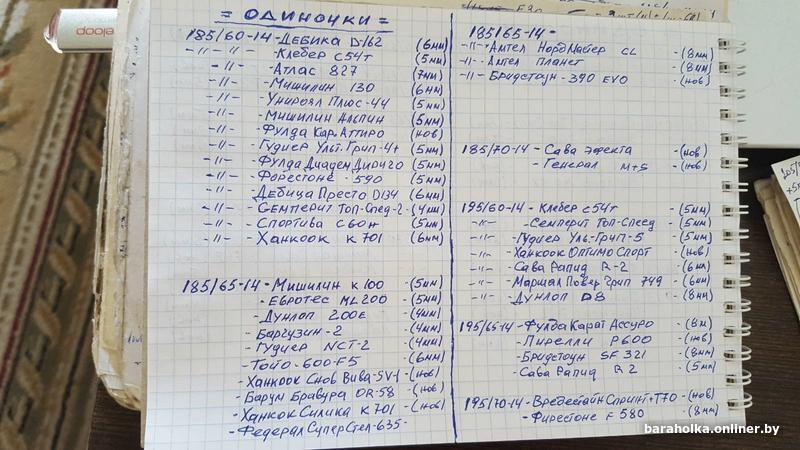 = ОДИНОЧКИ =
185/60-14-ДЕБИКА D-162 (6мм)
-11- -11- -Клебер С54Т (5мм)
-11- -Атлас 827 (7мм)
-11- -Мишилин 130 (6мм)
-11- -Унироял Плюс-44 (5мм)
-11- -Мишилин Алпин (5мм)
-11- -Фулда Кар. Аттиро (нов)
-11- -Гудиер Ульт. Грип-4+ (5мм)
-11- -Фулда Диадем Дириго (5мм)
-11- -Форестоне-590 (5мм)
-Дебица Престо D134 (6мм)
-11- -Семперит Топ-Спед-2-(4мм)
-11- -Спортива С60н (5мм)
-11- -Ханкоок К701 (6мм)
185/65-14-Мишилин К100 -(5мм)
-Евротес ML200 -(5мм)
-Дунлоп 200Е -(4мм)
-Баргузин-2 -(4мм)
-Гудиер NCT-2 -(4мм)
-Тойо-600-F5 (6мм)
-Ханкоок Снов Вива-SV-1-(нов)
-Барун Бравура DR-58 -(нов)
-Ханкок Силика К701 -(нов)
-Федерал СуперСтел-635-
185/65-14-
-11- -Амтел НордМастер CL -(8мм)
-11- -Амтел Планет -(8мм)
-11- -Бридстоун-390 EVO -(нов)
185/70-14-Сава Эфекта -(нов)
-Генерал M+S -(нов)
195/60-14-Клебер С54Т -(5мм)
-11- -Семперит Топ-Спеед -(5мм)
-11- -Гудиер Уль-Грип-5 -(5мм)
-11- -Ханкоок Оптимо Спорт -(нов)
-11- -Сава Рапид R-2 -(6мм)
-11- -Маршал Повер Грип 749 -(6мм)
-11- -Дунлоп D8 -(8мм)
195/65-14-Фулда Карат Ассуро -(8м)
-Пирелли Р600 -(нов)
-Бридстоун SF 321 -(8мм)
-Сава Рапид R2 -(5мм)
195/70-14-Вредестайн Спринт+Т70-(нов)
-Фирестоне F580 -(8мм)
baraholka.onliner.by